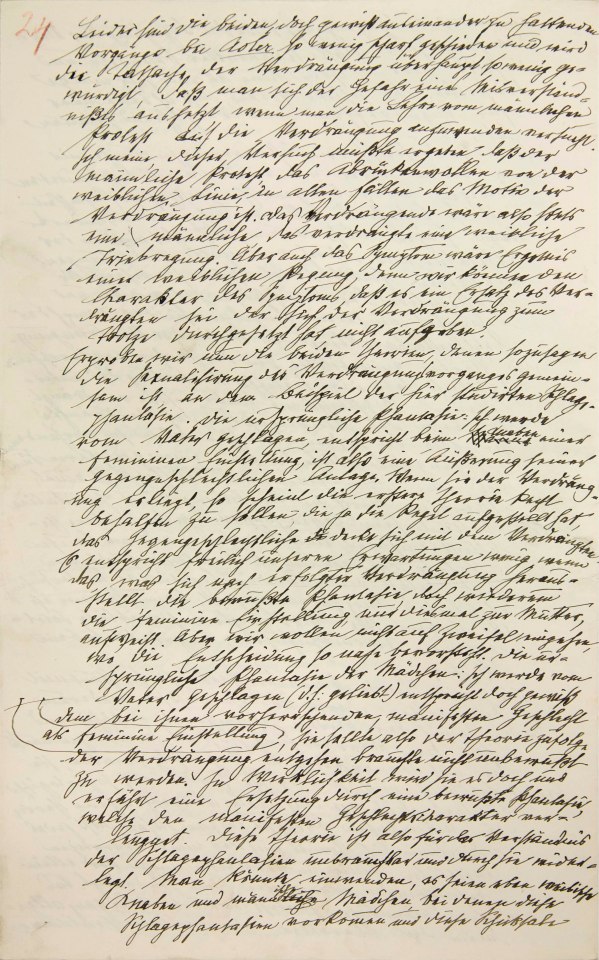 24
Leider sind die beiden, doch gewiß auseinander zu haltenden
Vorgänge bei Adler so wenig scharf geschieden und wird
die Tatsache der Verdrängung überhaupt so wenig ge-
würdigt, daß man sich der Gefahr eines Mißverständ-
nisses aussetzt, wenn man die Lehre vom männlichen
Protest auf die Verdrängung anzuwenden versucht.
Ich meine, dieser Versuch müßte ergeben, daß der
männliche Protest, das Abrückenwollen von der
weiblichen Linie, in allen Fällen das Motiv der
Verdrängung ist. Das Verdrängende wäre also stets
eine männliche, das Verdrängte eine weibliche
Triebregung. Aber auch das Symptom wäre Ergebnis
einer weiblichen Regung, denn wir können den
Charakter des Symptoms, daß es ein Ersatz des Ver-
drängten sei, der sich der Verdrängung zum
Trotze durchgesetzt hat, nicht aufgeben.
Erproben wir nun die beiden Theorien, denen sozusagen
die Sexualisierung des Verdrängungsvorganges gemein-
sam ist, an dem Beispiel der hier studirten Schlage-
phantasie. Die ursprüngliche Phantasie: ich werde
vom Vater geschlagen, entspricht beim Knaben einer
femininen Einstellung, ist also eine Äußerung seiner
gegengeschlechtlichen Anlage. Wenn sie der Verdräng-
ung erliegt, so scheint die erstere Theorie Recht
behalten zu sollen, die ja die Regel aufgestellt hat,
das Gegengeschlechtliche deckt sich mit dem Verdrängten.
Es entspricht freilich unseren Erwartungen wenig, wenn
das, was sich nach erfolgter Verdrängung heraus-
stellt, die bewußte Phantasie, doch wiederum
die feminine Einstellung, nur diesmal zur Mutter,
aufweist. Aber wir wollen nicht auf Zweifel eingehen,
wo die Entscheidung so nahe bevorsteht. Die ur-
sprüngliche Phantasie der Mädchen: ich werde vom
Vater geschlagen (d.h. geliebt) entspricht doch gewiß
dem bei ihnen vorherrschenden, manifesten Geschlecht
als feminine Einstellung, sie sollte also der Theorie zufolge
der Verdrängung entgehen, brauchte nicht unbewußt
zu werden. In Wirklichkeit wird sie es doch und
erfährt eine Ersetzung durch eine bewußte Phantasie,
welche den manifesten Geschlechtscharakter ver-
leugnet. Diese Theorie ist also für das Verständnis
der Schlagephantasien unbrauchbar und durch sie wider-
legt. Man könnte einwenden, es seien eben weibische
Knaben und männliche Mädchen, bei denen diese
Schlagephantasien vorkommen und diese Schicksale